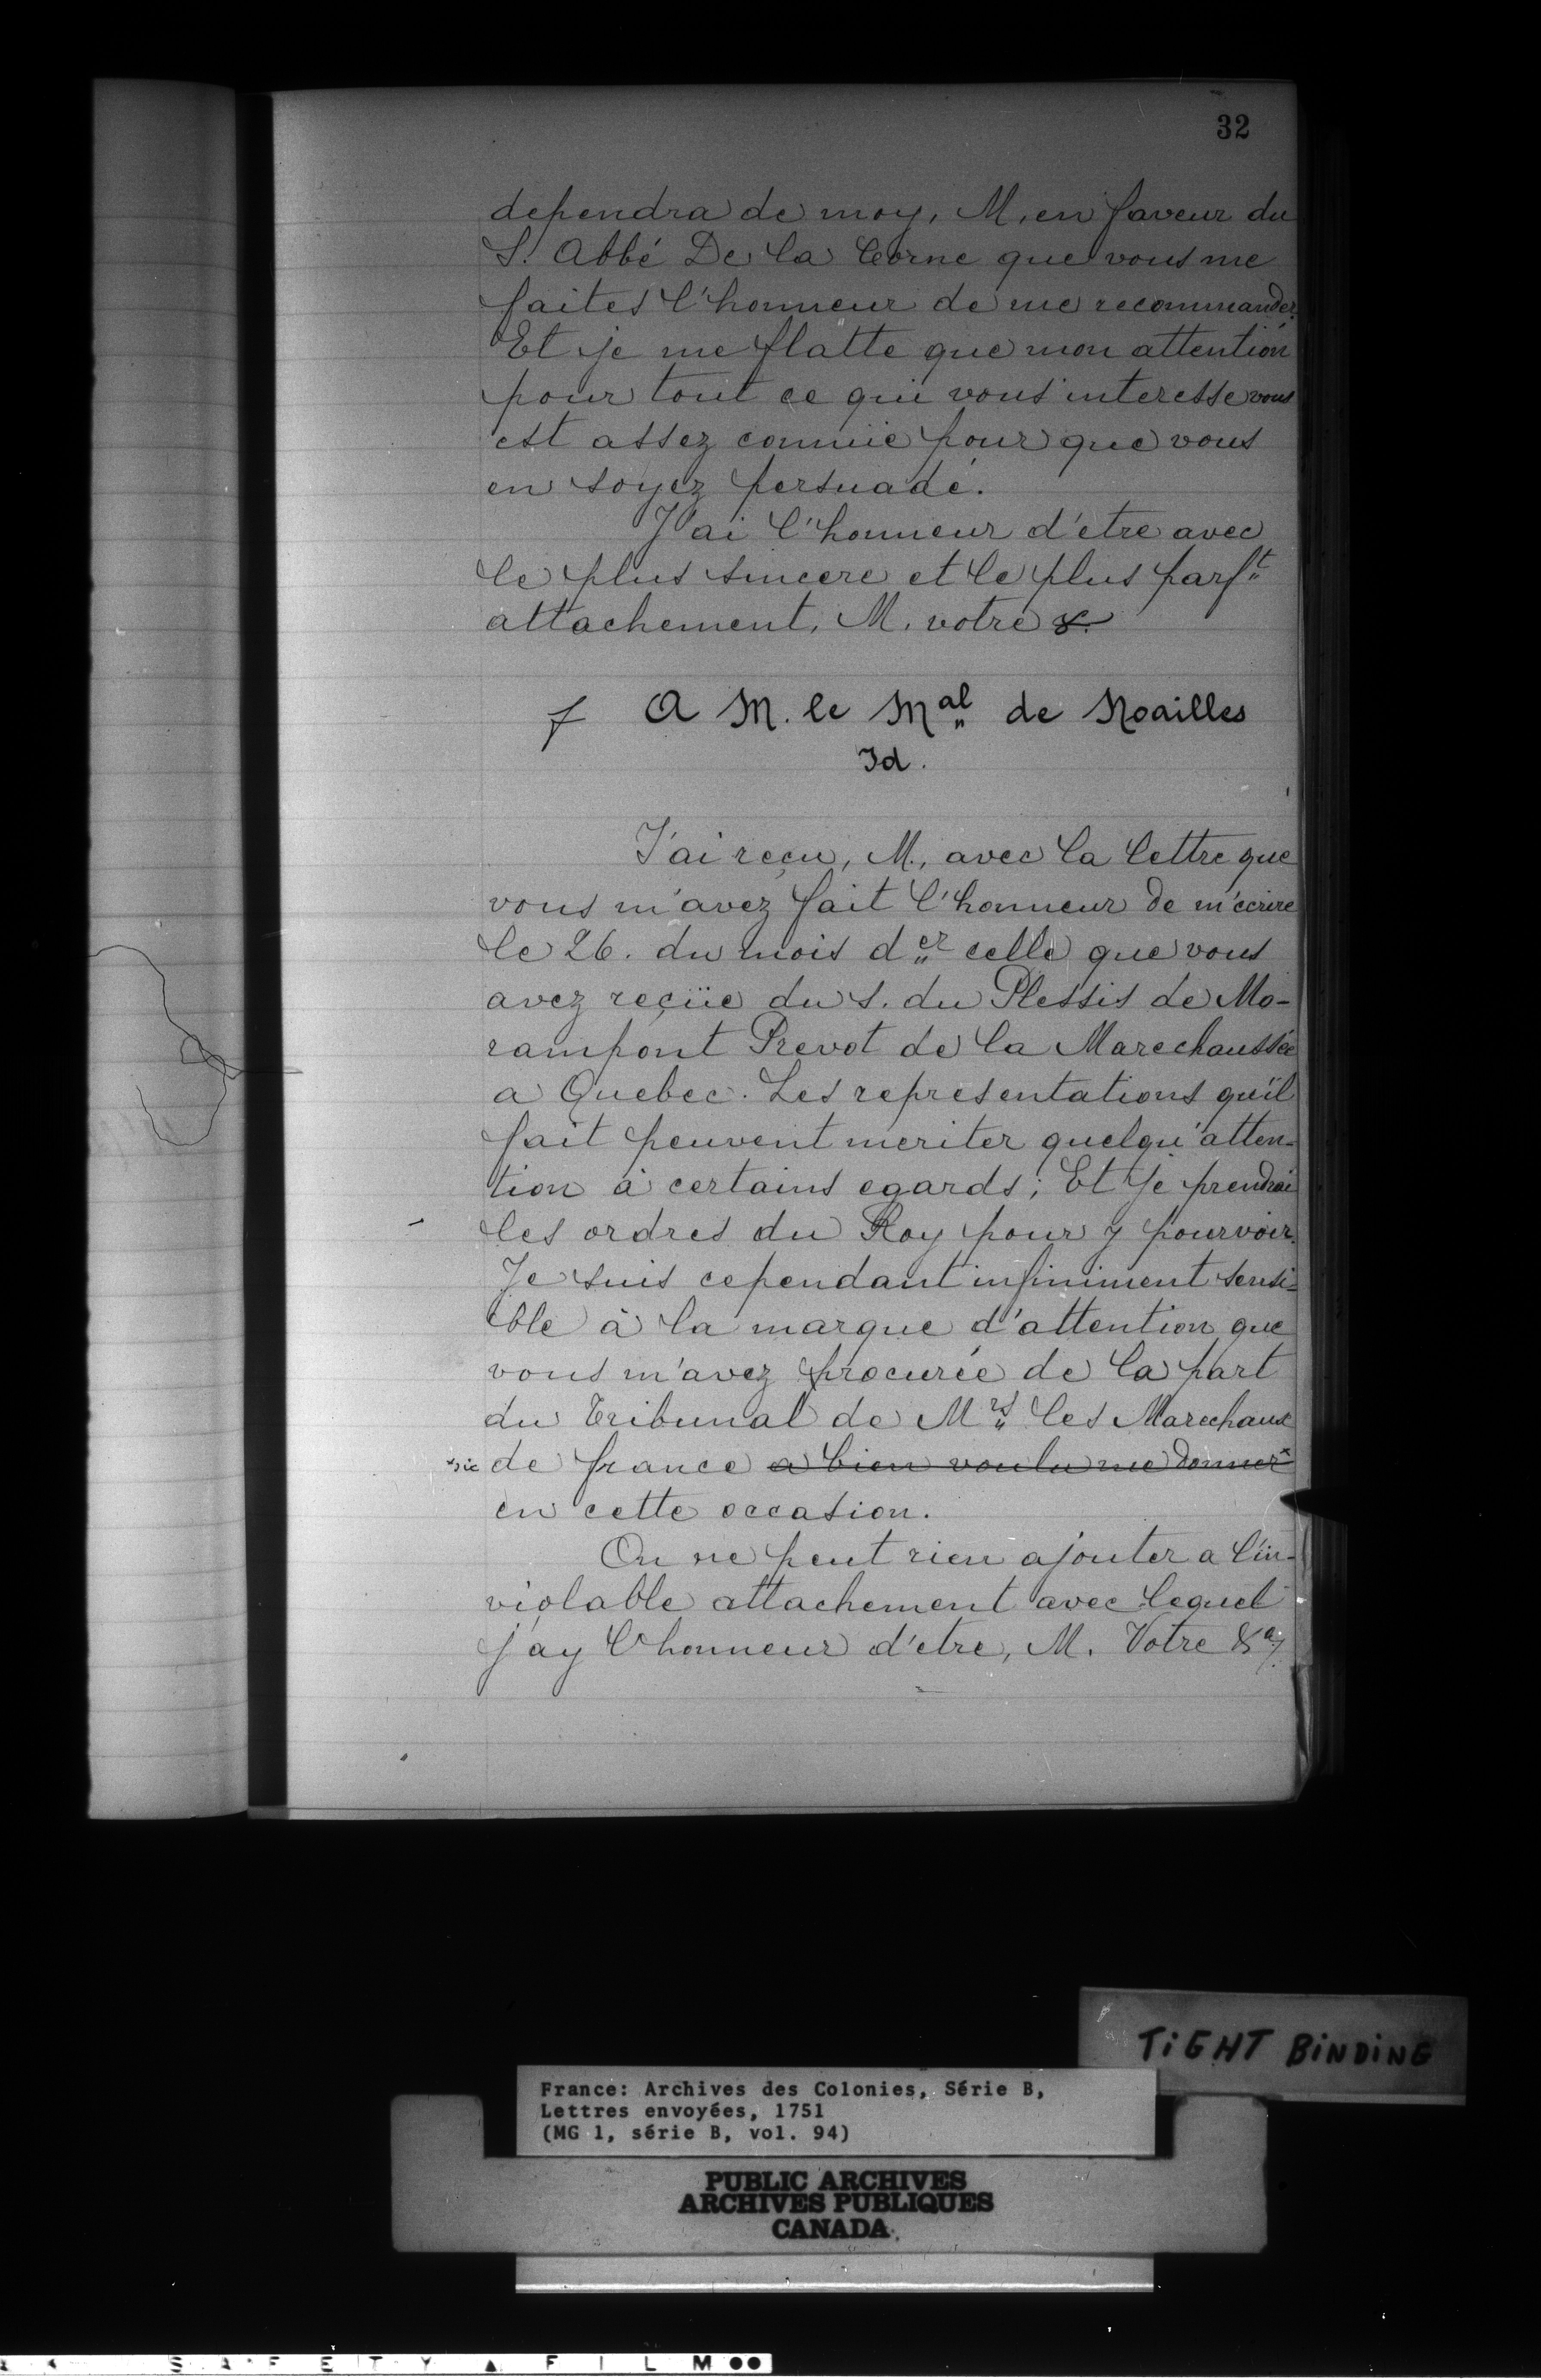 32
dependra de moy, M, en faveur du
S. Abbé De la Corne que vous me
faites l'honneur de me recommander.
Et je me flatte que mon attention
pour tout ce qui vous interesse vous
est assez connüe pour que vous
en soyez persuadé.
J'ai l'honneur d'etre avec
le plus sincere et le plus parft
attachement, M. votre &.
f A M. le Mal de Noailles
Id.
J'ai reçu, M., avec la lettre que
vous m'avez fait l'honneur de m'écrire
le 26. du mois der celle que vous
avez reçüe du s. du Plessis de Mo-
rampont Prevot de la Marechaussée
a Quebec. Les representations qu'il
fait peuvent meriter quelqu'atten-
tion à certains egards; Et je prendrai
les ordres du Roy pour y pourvoir.
Je suis cependant infiniment sensi-
ble à la marque d'attention que
vous m'avez procurée de la part
du Tribunal de Mrs les Marechaux
*sic de france a bien voulu me donner*
en cette occasion.
On ne peut rien ajouter a l'in-
violable attachement avec lequel
j'ay l'honneur d'etre, M. Votre &a
TIGHT BINDING
France: Archives des Colonies, Série B,
Lettres envoyées, 1751
(MG 1, série B, vol. 94)
PUBLIC ARCHIVES
ARCHIVES PUBLIQUES
CANADA
SAFETY FILM